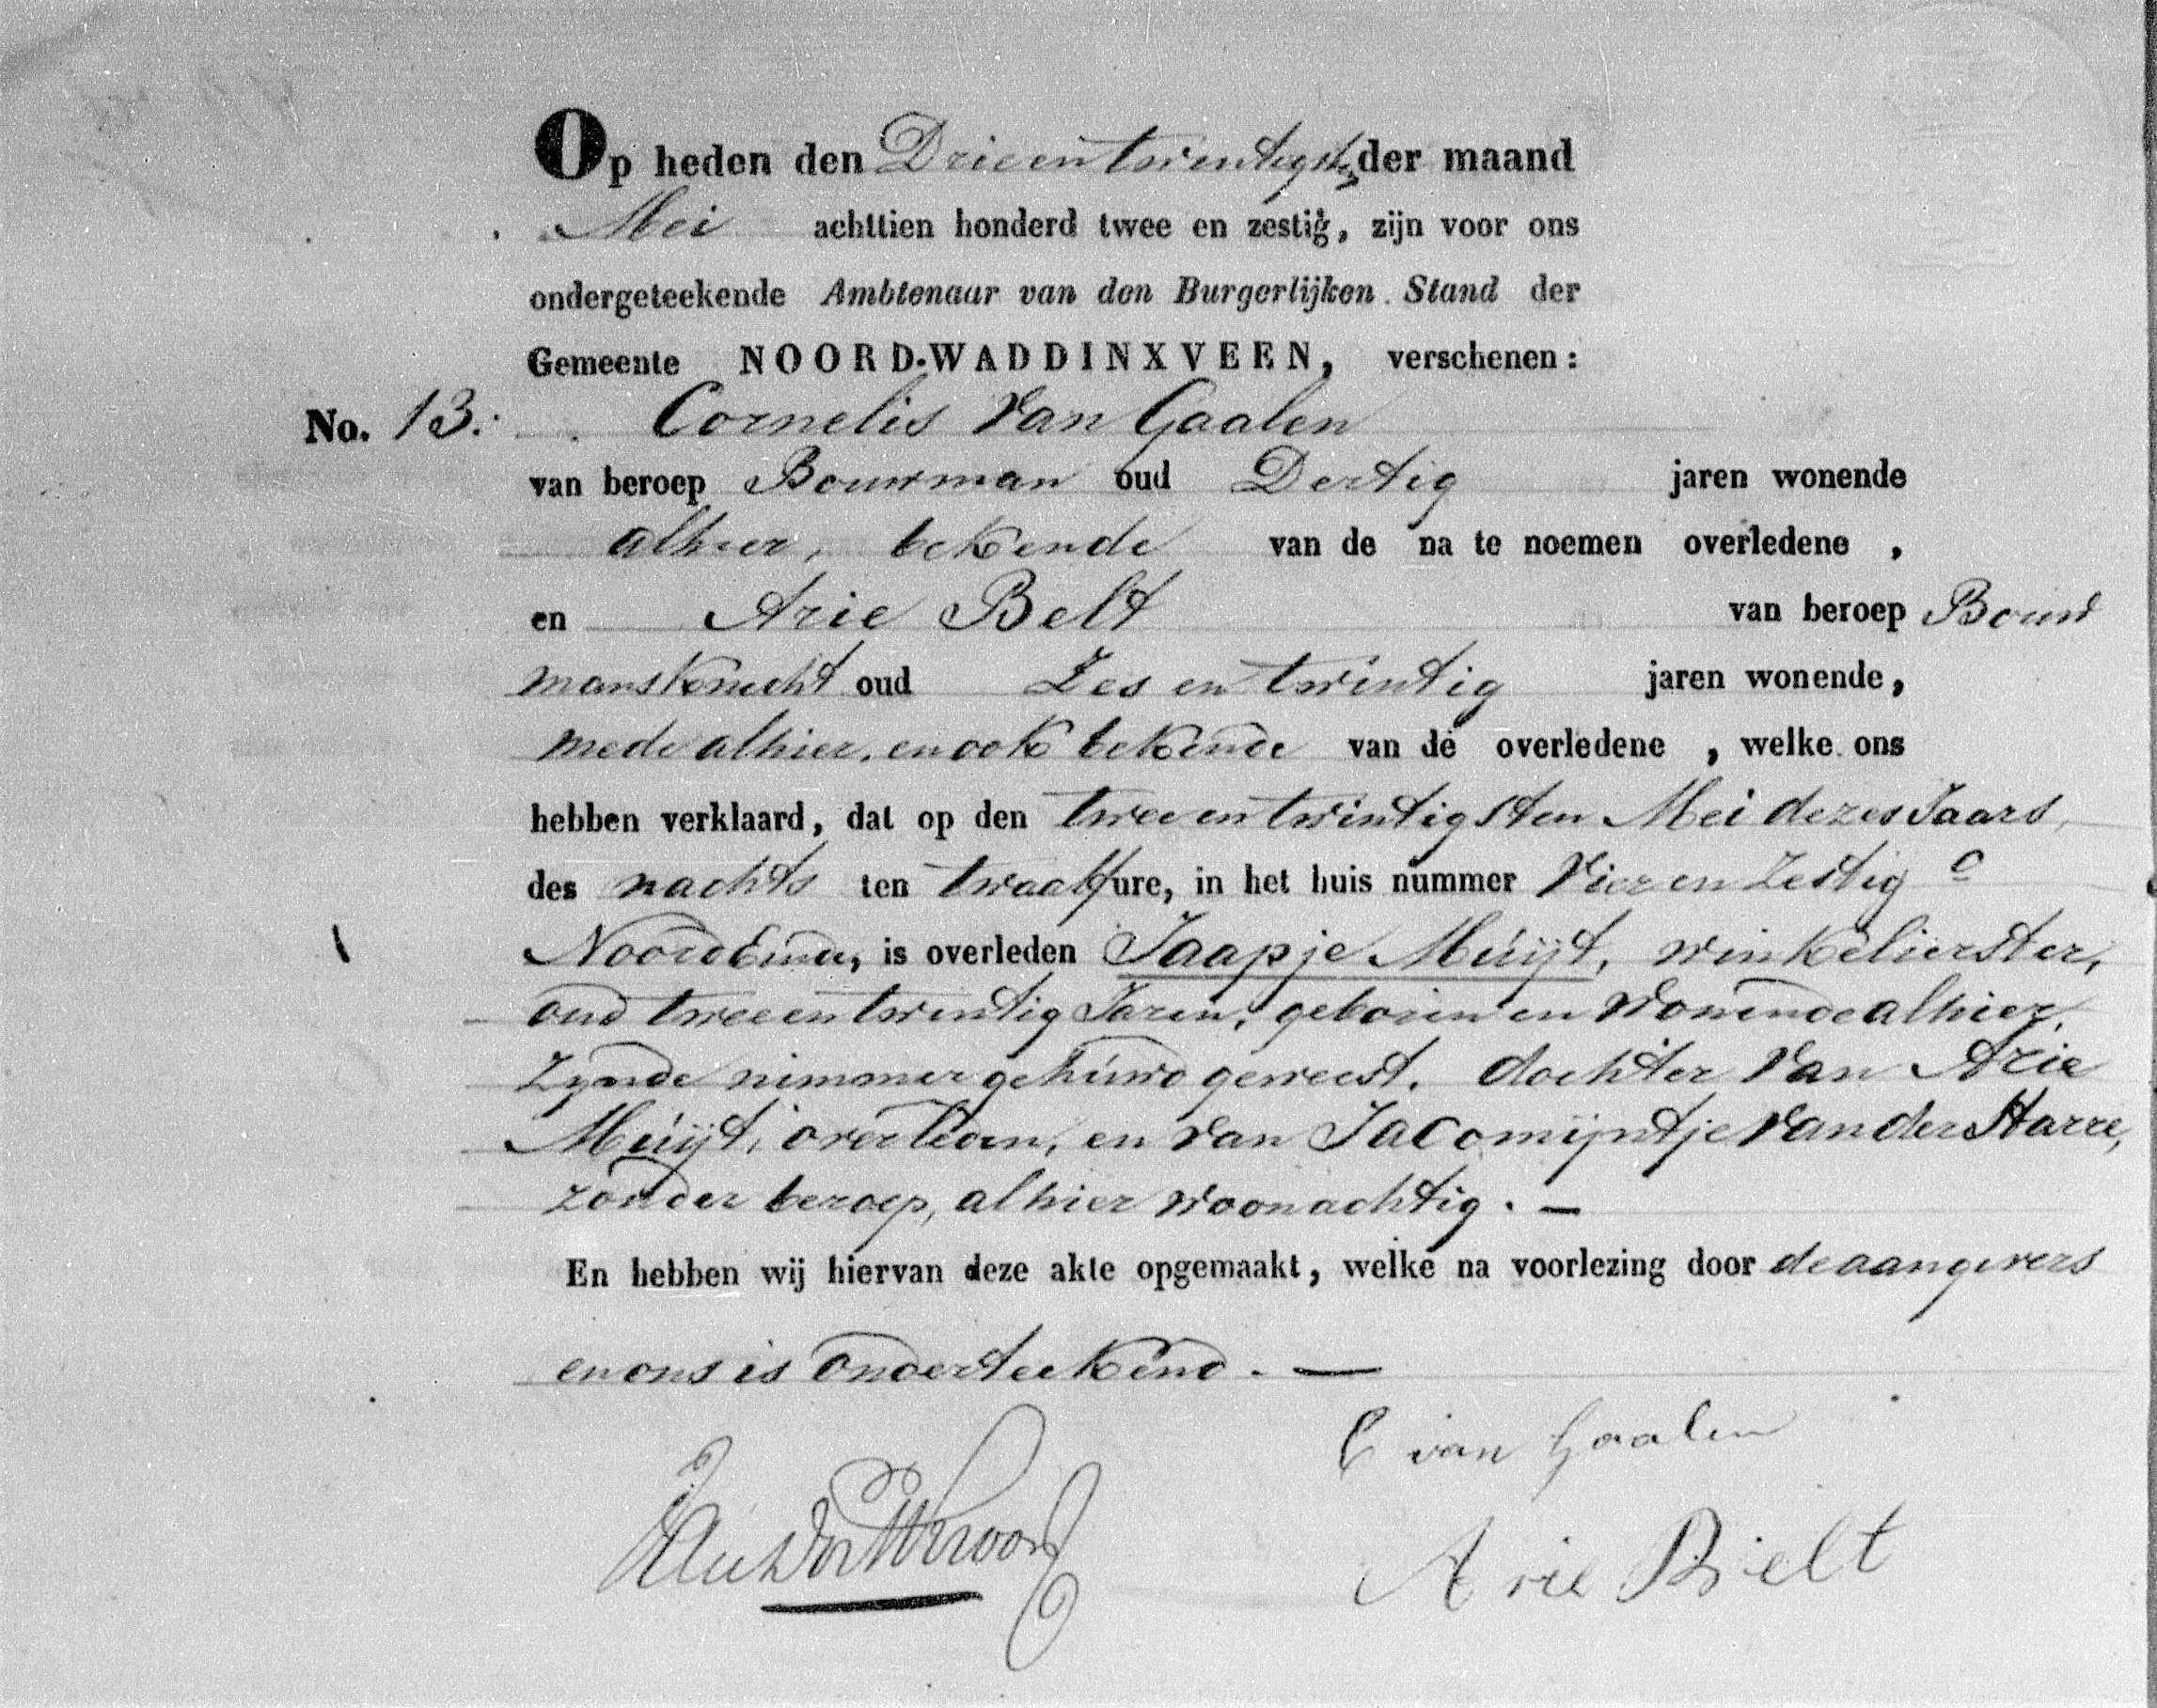 Op heden den Drieentwintigsten der maand
Mei achttien honderd twee en zestig, zijn voor ons
ondergeteekende Ambtenaar van den Burgerlijken Stand der
Gemeente NOORD-WADDINXVEEN, verschenen:
No. 13. Cornelis van Gaalen
van beroep Bouwman oud Dertig jaren wonende
alhier, bekende van de na te noemen overledene ,
en Arie Belt van beroep Bouw
mansknecht oud Zes en twintig jaren wonende,
mede alhier, en ook bekende van de overledene , welke ons
hebben verklaard, dat op den twee en twintigsten Mei dezes Jaars,
des nachts ten twaalf ure, in het huis nummer Vier en Zestig c
Noordeinde, is overleden Jaapje Muijt, winkelierster,
oud twee en twintig Jaren, geboren en wonende alhier,
Zynde nimmer gehuwd geweest. dochter van Arie
Muijt, overleden, en van Jacomijntje van der Starre,
zonder beroep, alhier woonachtig. —
En hebben wij hiervan deze akte opgemaakt, welke na voorlezing door de aangevers
en ons is onderteekend. —
C van Gaalen
Arie Bielt